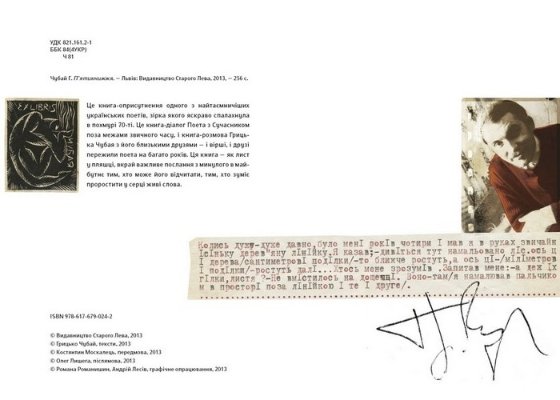 УДК 821.161.2-1
ББК 84(4УКР)
Ч 81
Чубай Г. П’ятикнижжя. — Львів: Видавництво Старого Лева, 2013, — 256 с.
EX LIBRIS
Г. ЧУБАЯ
Це книга-оприсутнення одного з найтаємничіших
українських поетів, зірка якого яскраво спалахнула
в похмурі 70-ті. Це книга-діалог Поета з Сучасником
поза межами звичного часу, і книга-розмова Гриць-
ка Чубая з його близькими друзями — і вірші, і друзі
пережили поета на багато років. Ця книга — як лист
у пляшці, вкрай важливе послання з минулого в май-
бутнє тим, хто може його відчитати, тим, хто зуміє
проростити у серці живі слова.
Колись дуже-дуже давно, було мені років чотири і мав я в руках звичайн
ісіньку дерев"яну лінійку.Я казав:-дивіться тут намальовано ліс.ось ц
і дерева/сантиметрові поділки/-то ближче ростуть,а ось ці-/міліметров
і поділки/-ростуть далі...Хтось мене зрозумів .Запитав мене:-а деж їх
гілки,листя ?-Не вмістилось на дощечці. Воно-там/я намалював пальчико
м в просторі поза лінійкою і те і друге/.
ISBN 978-617-679-024-2
© Видавництво Старого Лева, 2013
© Грицько Чубай, тексти, 2013
© Костянтин Москалець, передмова, 2013
© Олег Лишега, післямова, 2013
© Романа Романишин, Андрій Лесів, графічне опрацювання, 2013